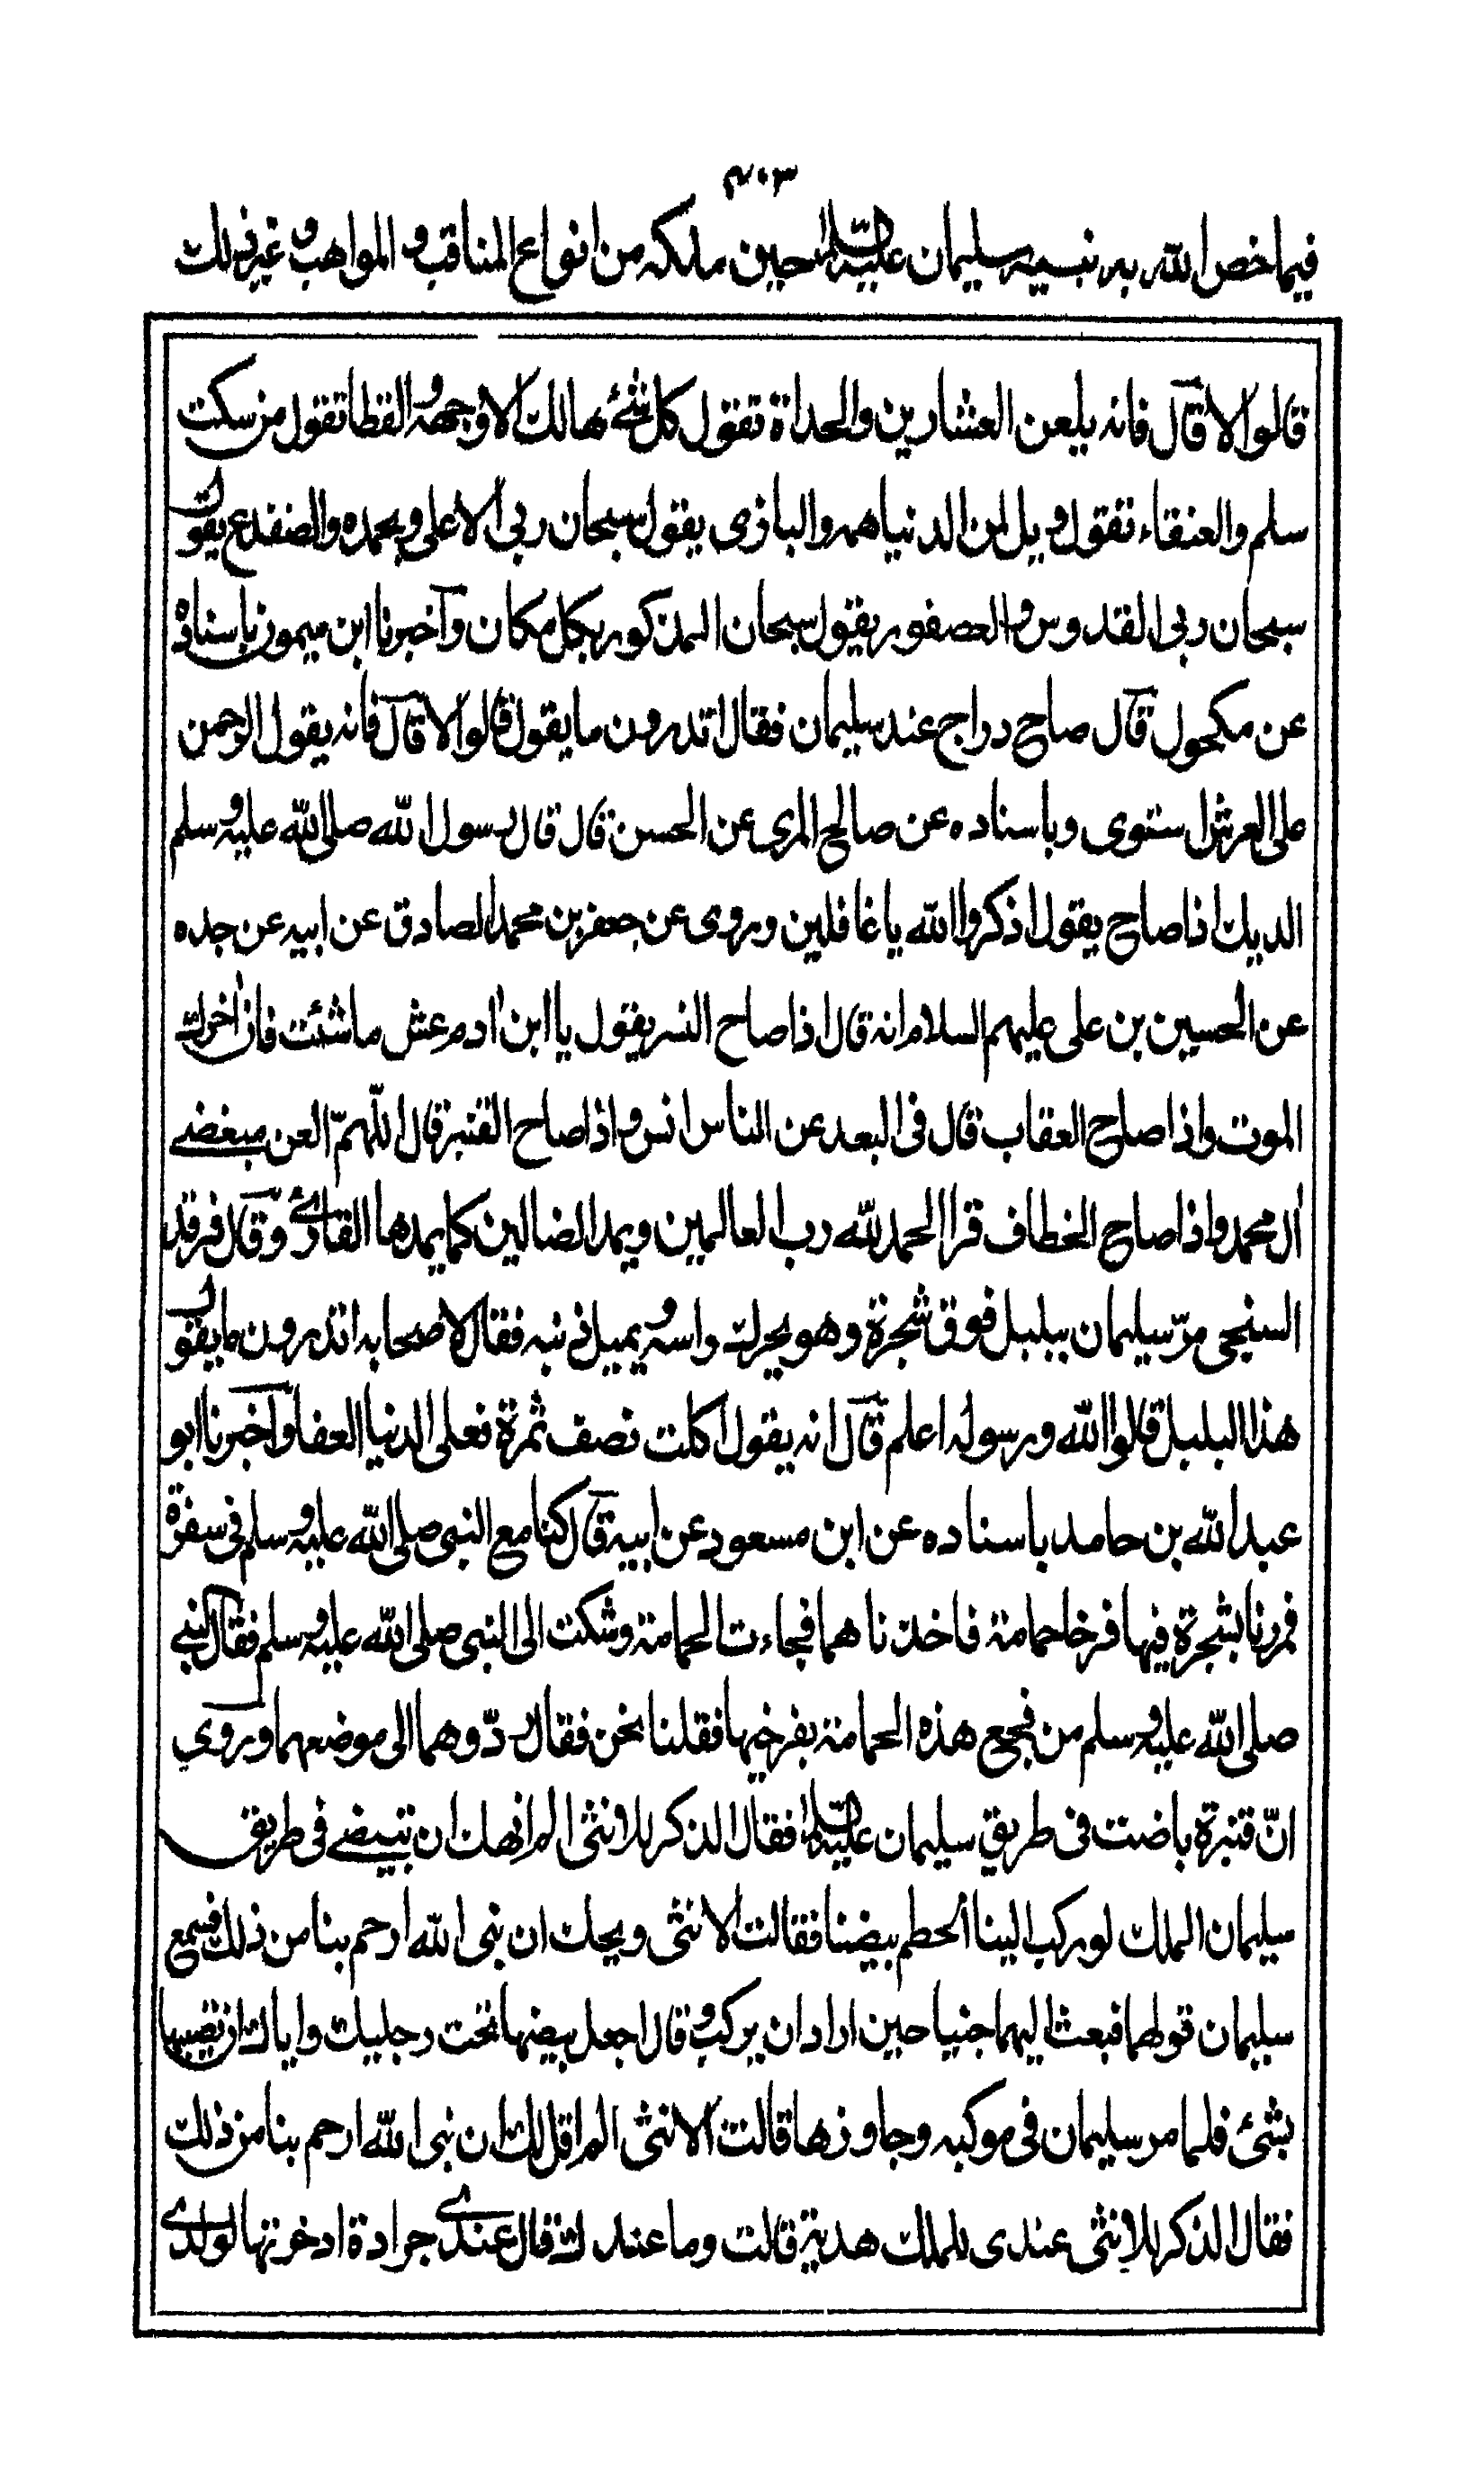 ٣٠٣
فيما خص الله به نبيه سليمان عليه السلام حين ملكه من انواع المناقب و المواهب و غير ذلك
قالوا لا قال فانه يلعن العشارين والحداة تقول كل شئ هالك الا وجهه والقطا تقول من سكت
سلم والعنقاء تقول ويل لمن الدنيا همه والبازى يقول سبحان ربى الاعلى وبحمده والضفدع يقول
سبحان ربى القدوس والعصفور يقول سبحان المذكور بكل مكان وآخبرنا ابن ميمون باسناده
عن مكحول قال صاح دراج عند سليمان فقال اتدرون ما يقول قالوا لا قال فانه يقول الرحمن
على العرش استوى وباسناده عن صالح المرى عن الحسن قال قال رسول الله صلى الله عليه وسلم
الديك اذا صاح يقول اذكروا الله يا غافلين وروى عن جعفر بن محمد الصادق عن ابيه عن جده
عن الحسين بن على عليهم السلام انه قال اذا صاح النسر يقول يا ابن ادم عش ما شئت فان اخرك
الموت واذا صاح العقاب قال فى البعد عن الناس انس واذا صاح القنبر قال اللهمّ العن مبغضے
ال محمد واذا صاح الخطاف قرا الحمد لله رب العالمين ويمد الضالين كما يمدها القارئ وقال فرقد
السنجى مرّ سليمان ببلبل فوق شجرة وهو يحرك راسه و يميل ذنبه فقال لاصحابه اتدرون ما يقول
هذا البلبل قالوا الله ورسوله اعلم قال انه يقول اكلت نصف ثمرة فعلى الدنيا العفا وآخبرنا ابو
عبد الله بن حامد باسناده عن ابن مسعود عن ابيه قال كنا مع النبى صلى الله عليه وسلم فى سفرة
فمررنا بشجرة فيها فرخا حمامة فاخذناهما فجاءت الحمامة وشكت الى النبى صلى الله عليه وسلم فقال النبے
صلى الله عليه وسلم من فجع هذه الحمامة بفرخيها فقلنا نحن فقال ردّوهما الى موضعهما وروي
انّ قنبرة باضت فى طريق سليمان عليه السلام فقال الذكر للانثى الم انهك ان تبيضے فى طريق
سليمان الملك لو ركب الينا الحطم بيضنا فقالت الانثى ويحك ان نبى الله ارحم بنا من ذلك فسمع
سليمان قولهما فبعث اليهما جنيا حين اراد ان يركب و قال اجعل بيضها تحت رجليك واياك ان تصيبها
بشئ فلما مر سليمان فى موكبه وجاوزها قالت الانثى الم اقل لك ان نبى الله ارحم بنا من ذلك
فقال الذكر للانثى عندى للملك هدية قالت وما عندك قال عندي جرادة ادخرتها لولدي